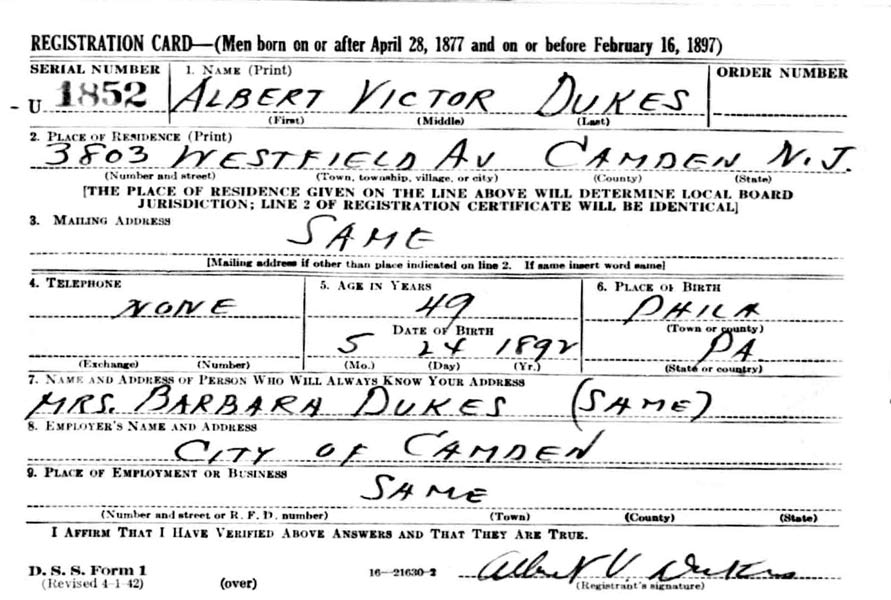 REGISTRATION CARD—(Men born on or after April 28, 1877 and on or before February 16, 1897)
SERIAL NUMBER 1. NAME (Print) ORDER NUMBER
U 1852 ALBERT VICTOR DUKES
(First) (Middle) (Last)
2. PLACE OF RESIDENCE (Print)
3803 WESTFIELD AV CAMDEN N.J.
(Number and street) (Town, township, village, or city) (County) (State)
[THE PLACE OF RESIDENCE GIVEN ON THE LINE ABOVE WILL DETERMINE LOCAL BOARD
JURISDICTION; LINE 2 OF REGISTRATION CERTIFICATE WILL BE IDENTICAL]
3. MAILING ADDRESS
SAME
[Mailing address if other than place indicated on line 2. If same insert word same]
4. TELEPHONE 5. AGE IN YEARS 6. PLACE OF BIRTH
NONE 49 PHILA
DATE OF BIRTH (Town or county)
5 24 1892 PA
(Exchange) (Number) (Mo.) (Day) (Yr.) (State or country)
7. NAME AND ADDRESS OF PERSON WHO WILL ALWAYS KNOW YOUR ADDRESS
MRS. BARBARA DUKES (SAME)
8. EMPLOYER'S NAME AND ADDRESS
CITY OF CAMDEN
9. PLACE OF EMPLOYMENT OR BUSINESS
SAME
(Number and street or R. F. D. number) (Town) (County) (State)
I AFFIRM THAT I HAVE VERIFIED ABOVE ANSWERS AND THAT THEY ARE TRUE.
D. S. S. Form 1 16—21630-2 Albert V. Dukes
(Revised 4-1-42) (over) (Registrant's signature)